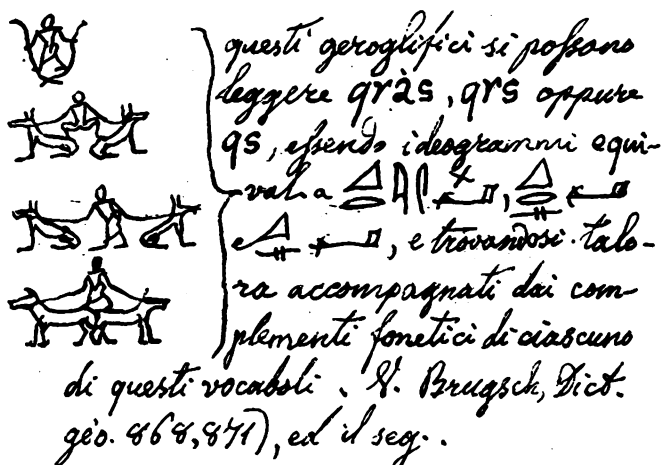 questi geroglifici si poſsono
leggere qràs, qrs oppure
qs, eſsendo ideogrammi equi-
val. a 𓈎𓂋𓇋𓋴, 𓈎𓂋𓊃
e 𓈎𓊃, e trovandosi talo-
ra accompagnati dai com-
plementi fonetici di ciascuno
di questi vocaboli. V. Brugsch, Dict.
géo. 868,871), ed il seg..